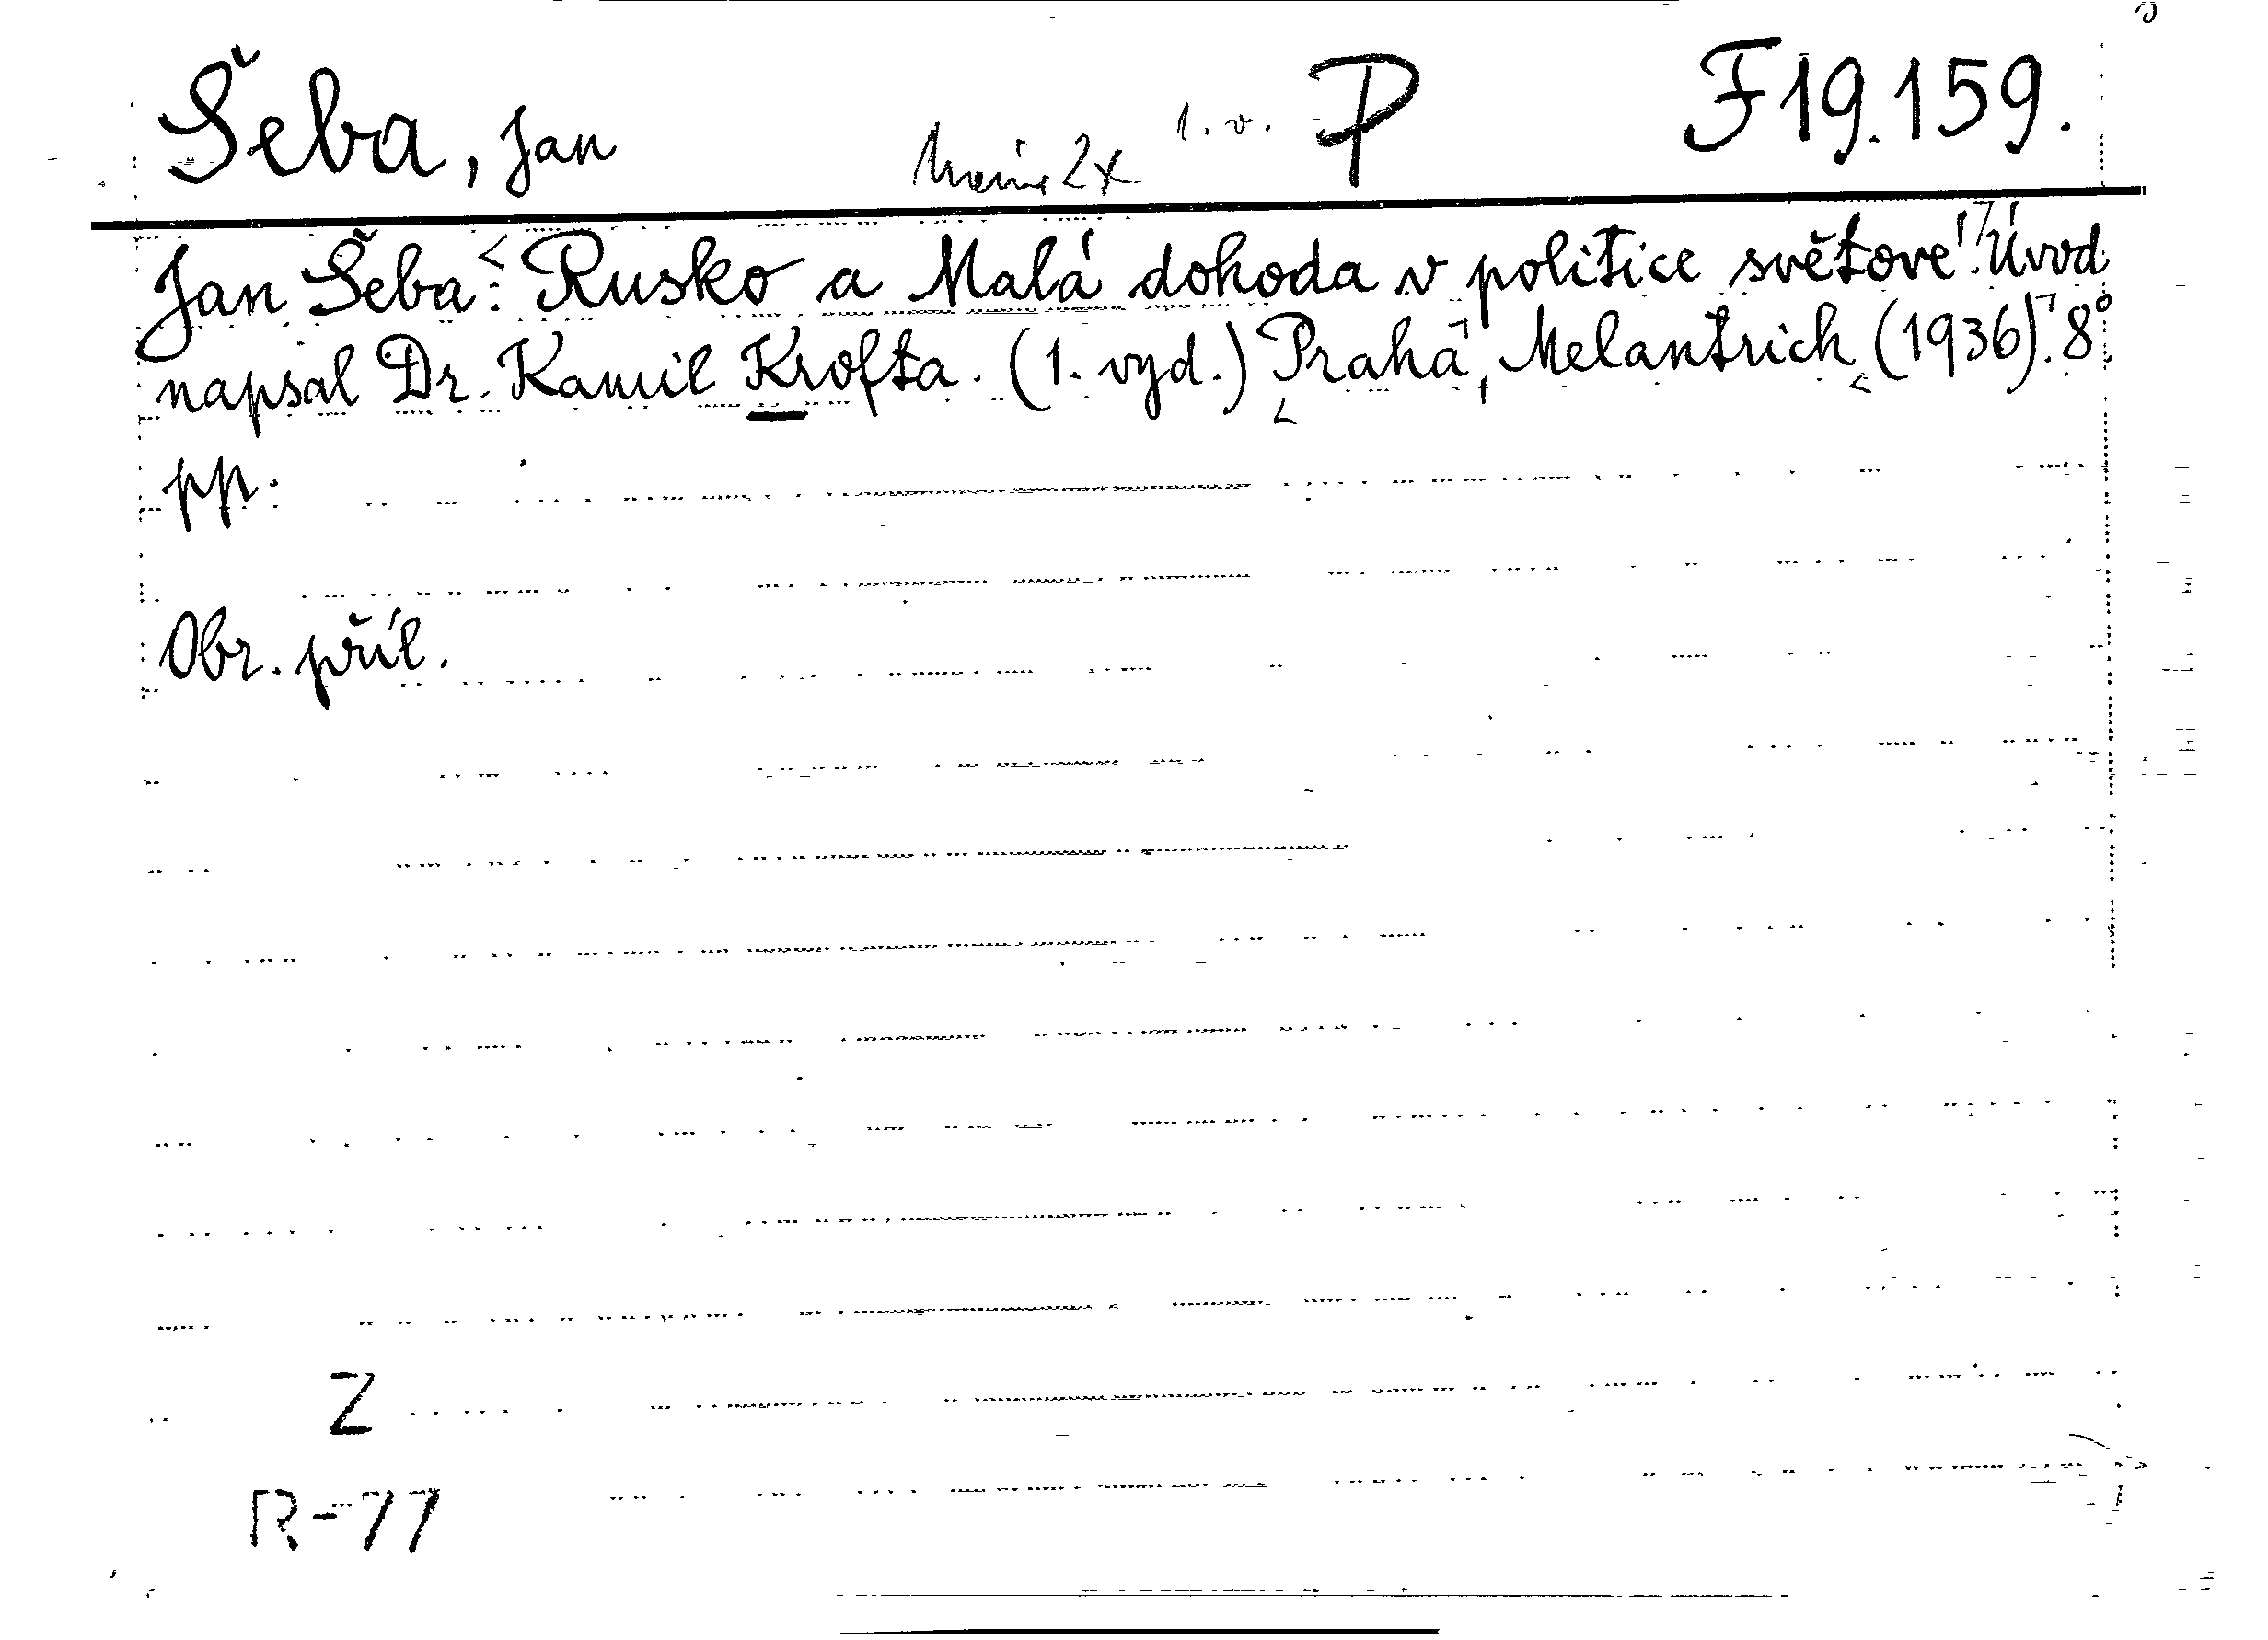 Šeba, Jan 2x 1. v. P F 19.159.
Jan Šeba: Rusko a Malá dohoda v politice světové. Úvod
napsal Dr. Kamil Krofta. (1. vyd.) Praha, Melantrich (1936). 8°
pp.
Obr. příl.
Z
R-77